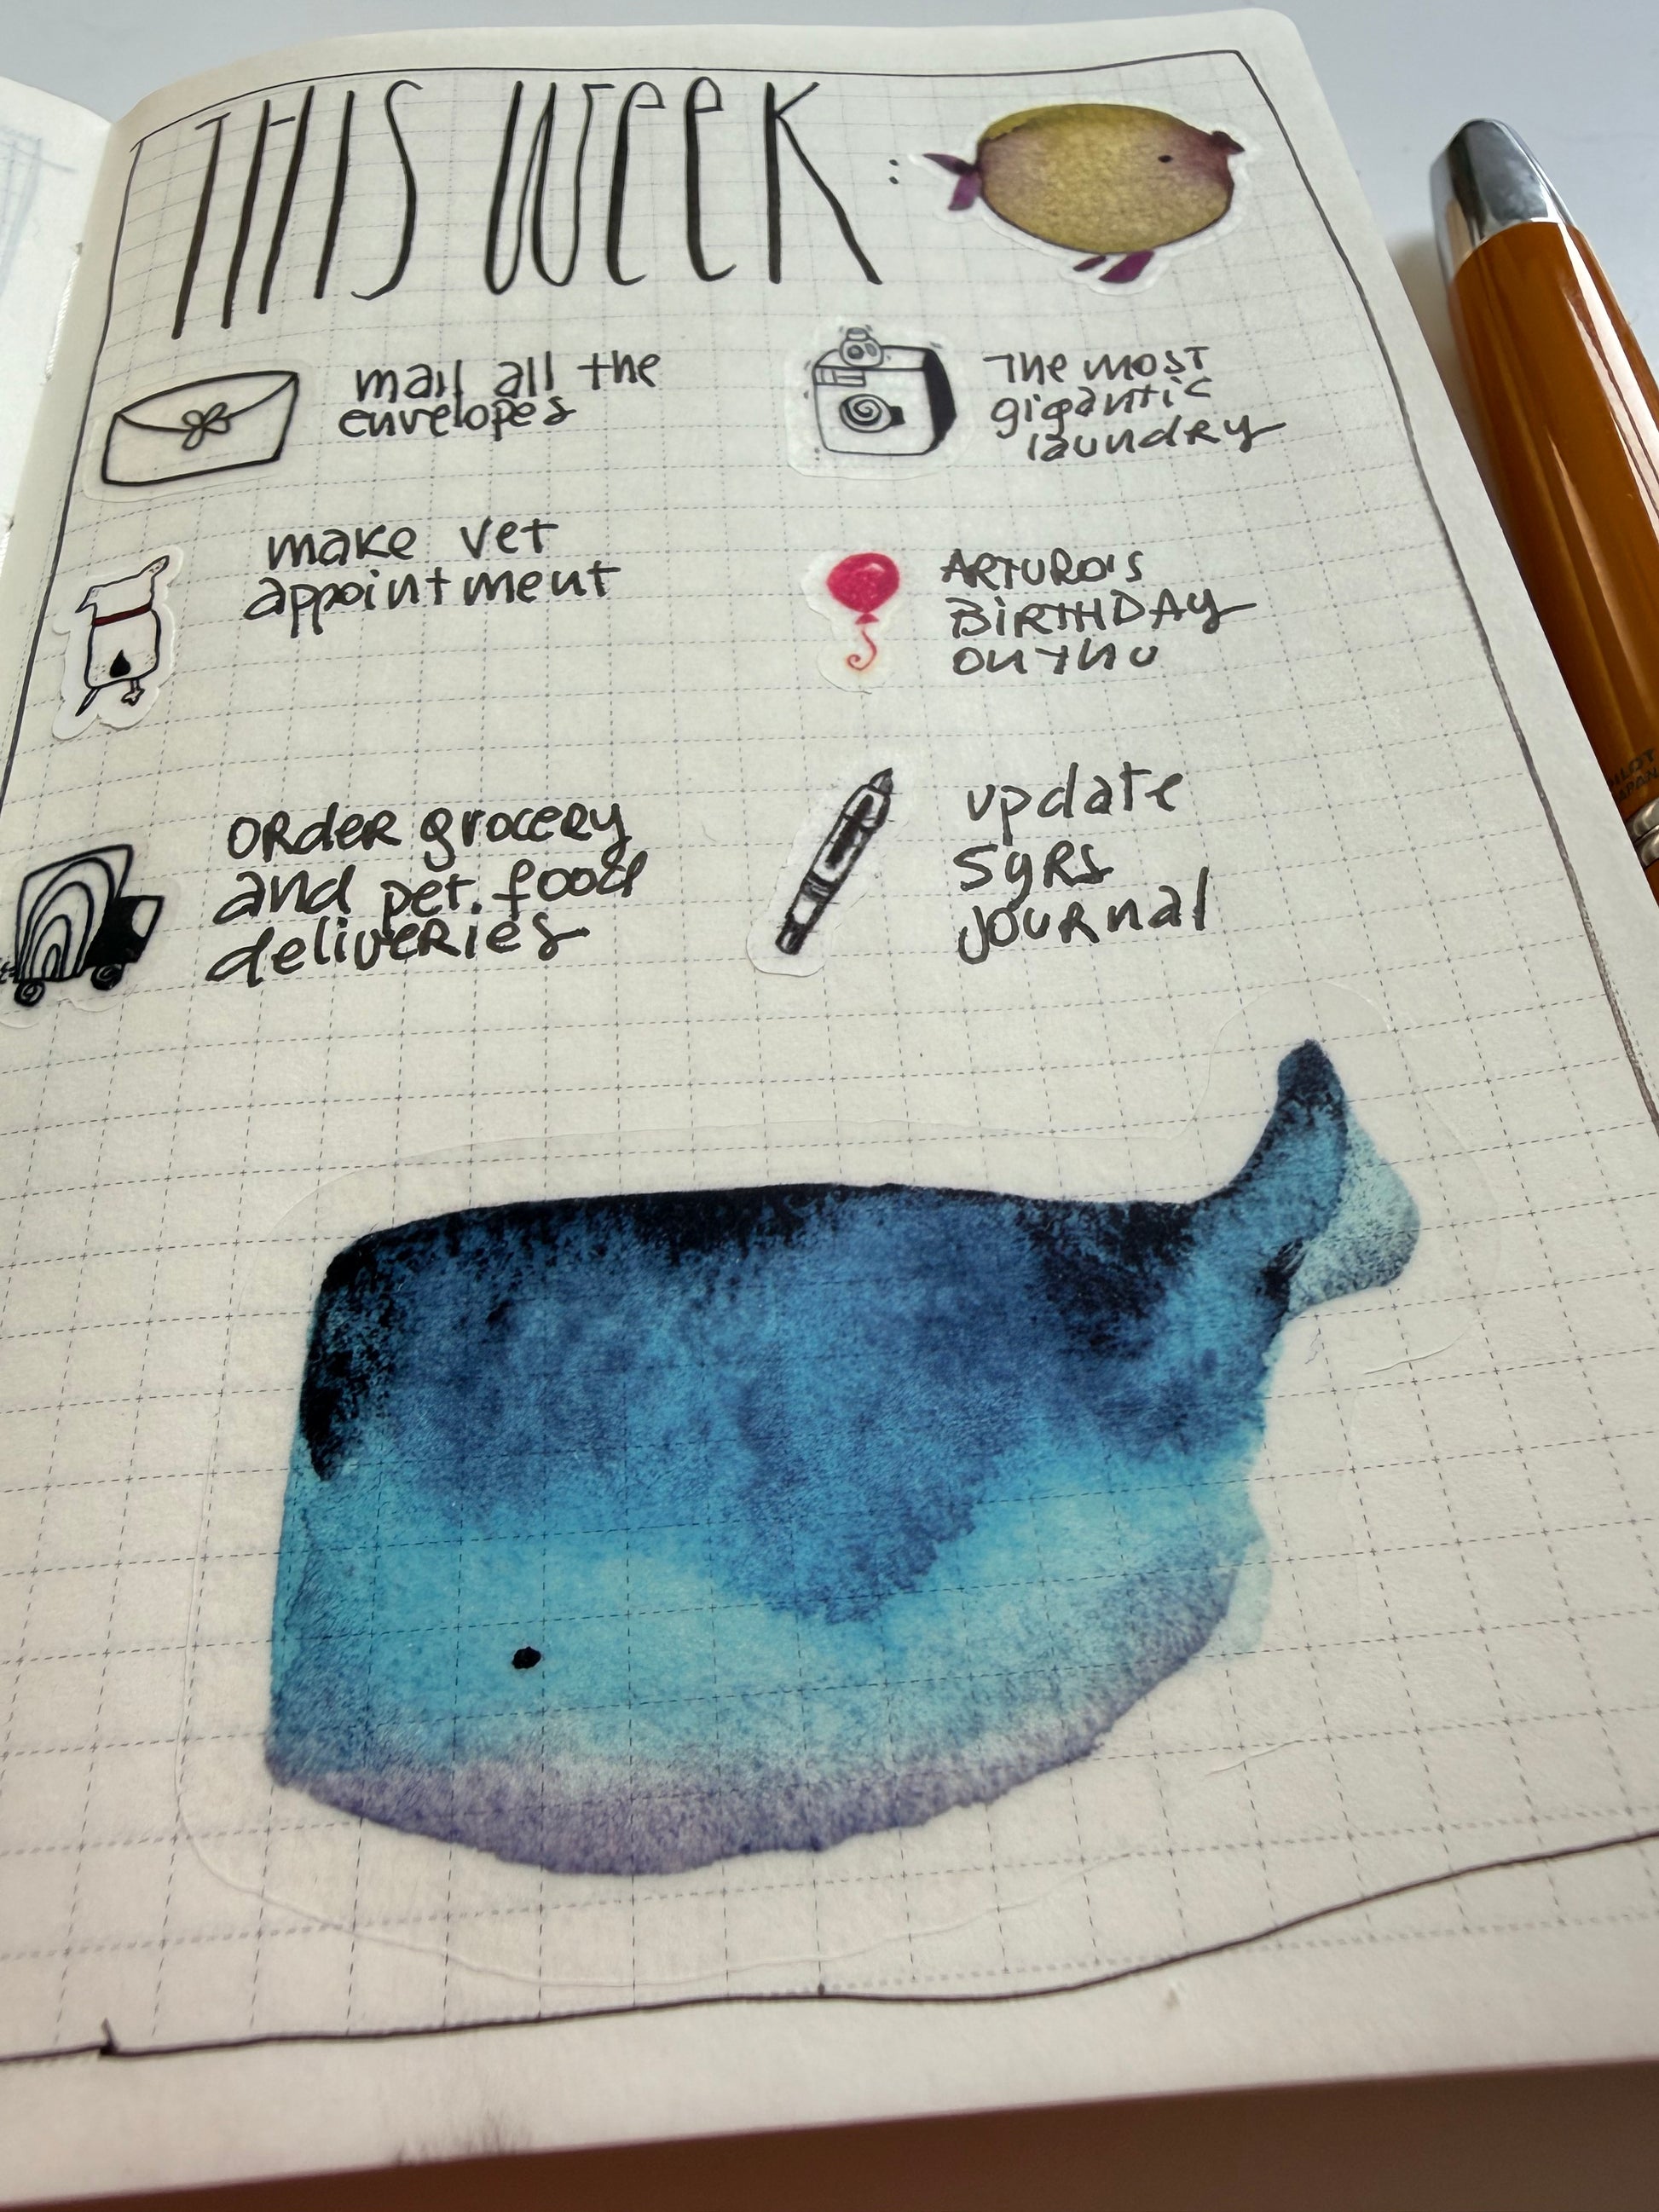 THIS WEEK:
mail all the
envelopes
The most
gigantic
laundry
make vet
appointment
ARTURO'S
BIRTHDAY
ON THU
order grocery
and pet food
deliveries
update
5YRS
JOURNAL
PILOT
JAPAN